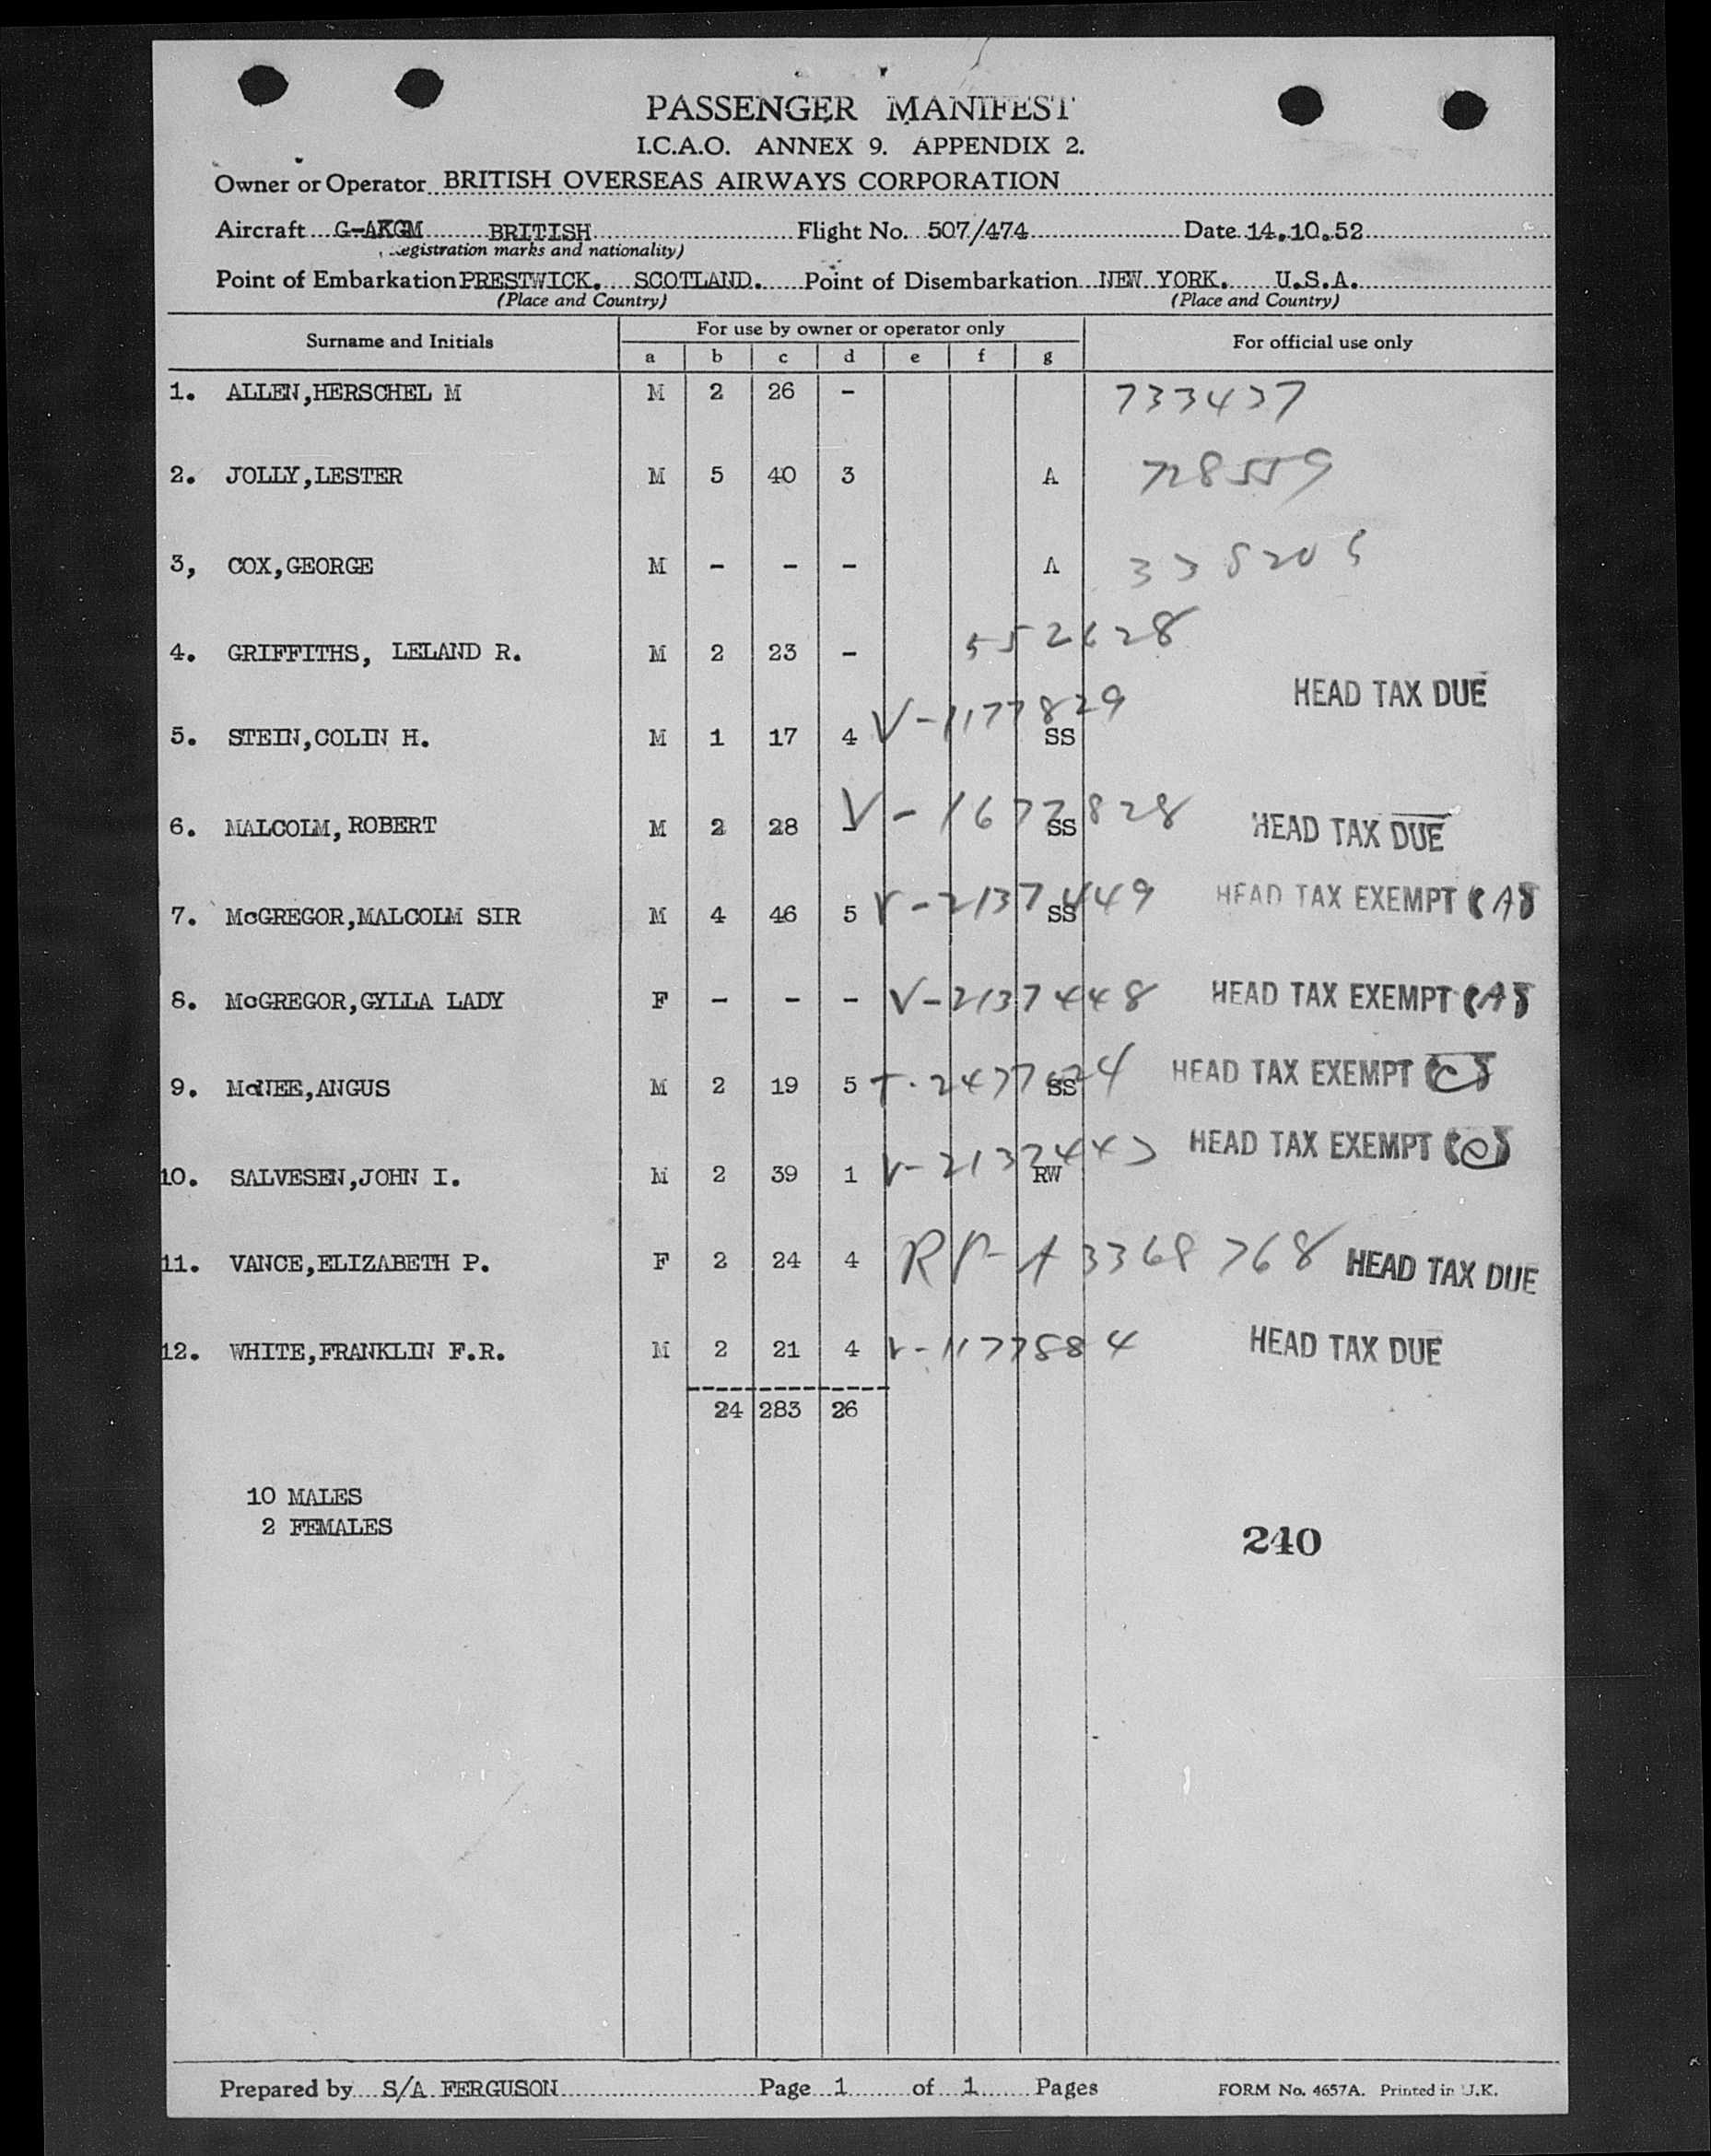 PASSENGER MANIFEST
I.C.A.O. ANNEX 9. APPENDIX 2.
Owner or Operator BRITISH OVERSEAS AIRWAYS CORPORATION
Aircraft G-AKGM BRITISH Flight No. 507/474 Date 14.10.52
(Registration marks and nationality)
Point of Embarkation PRESTWICK. SCOTLAND. Point of Disembarkation NEW YORK. U.S.A.
(Place and Country) (Place and Country)
Surname and Initials For use by owner or operator only For official use only
a b c d e f g
1. ALLEN,HERSCHEL M M 2 26 - 733437
2. JOLLY,LESTER M 5 40 3 A 728559
3, COX,GEORGE M - - - A
4. GRIFFITHS, LELAND R. M 2 23 - 552628
HEAD TAX DUE
5. STEIN,COLIN H. M 1 17 4 V-1177829 SS
6. MALCOLM, ROBERT M 2 28 - V-1677828 SS HEAD TAX DUE
7. McGREGOR,MALCOLM SIR M 4 46 5 V-2137449 SS HEAD TAX EXEMPT (A)
8. McGREGOR,GYLLA LADY F - - - V-2137448 HEAD TAX EXEMPT (A)
9. McNEE,ANGUS M 2 19 5 SS HEAD TAX EXEMPT (C)
10. SALVESEN,JOHN I. M 2 39 1 V-2137443 RW HEAD TAX EXEMPT (C)
11. VANCE,ELIZABETH P. F 2 24 4 RP-A3368768 HEAD TAX DUE
12. WHITE,FRANKLIN F.R. M 2 21 4 V-1177884 HEAD TAX DUE
24 283 26
10 MALES
2 FEMALES
240
Prepared by S/A FERGUSON Page 1 of 1 Pages FORM No. 4657A. Printed in U.K.